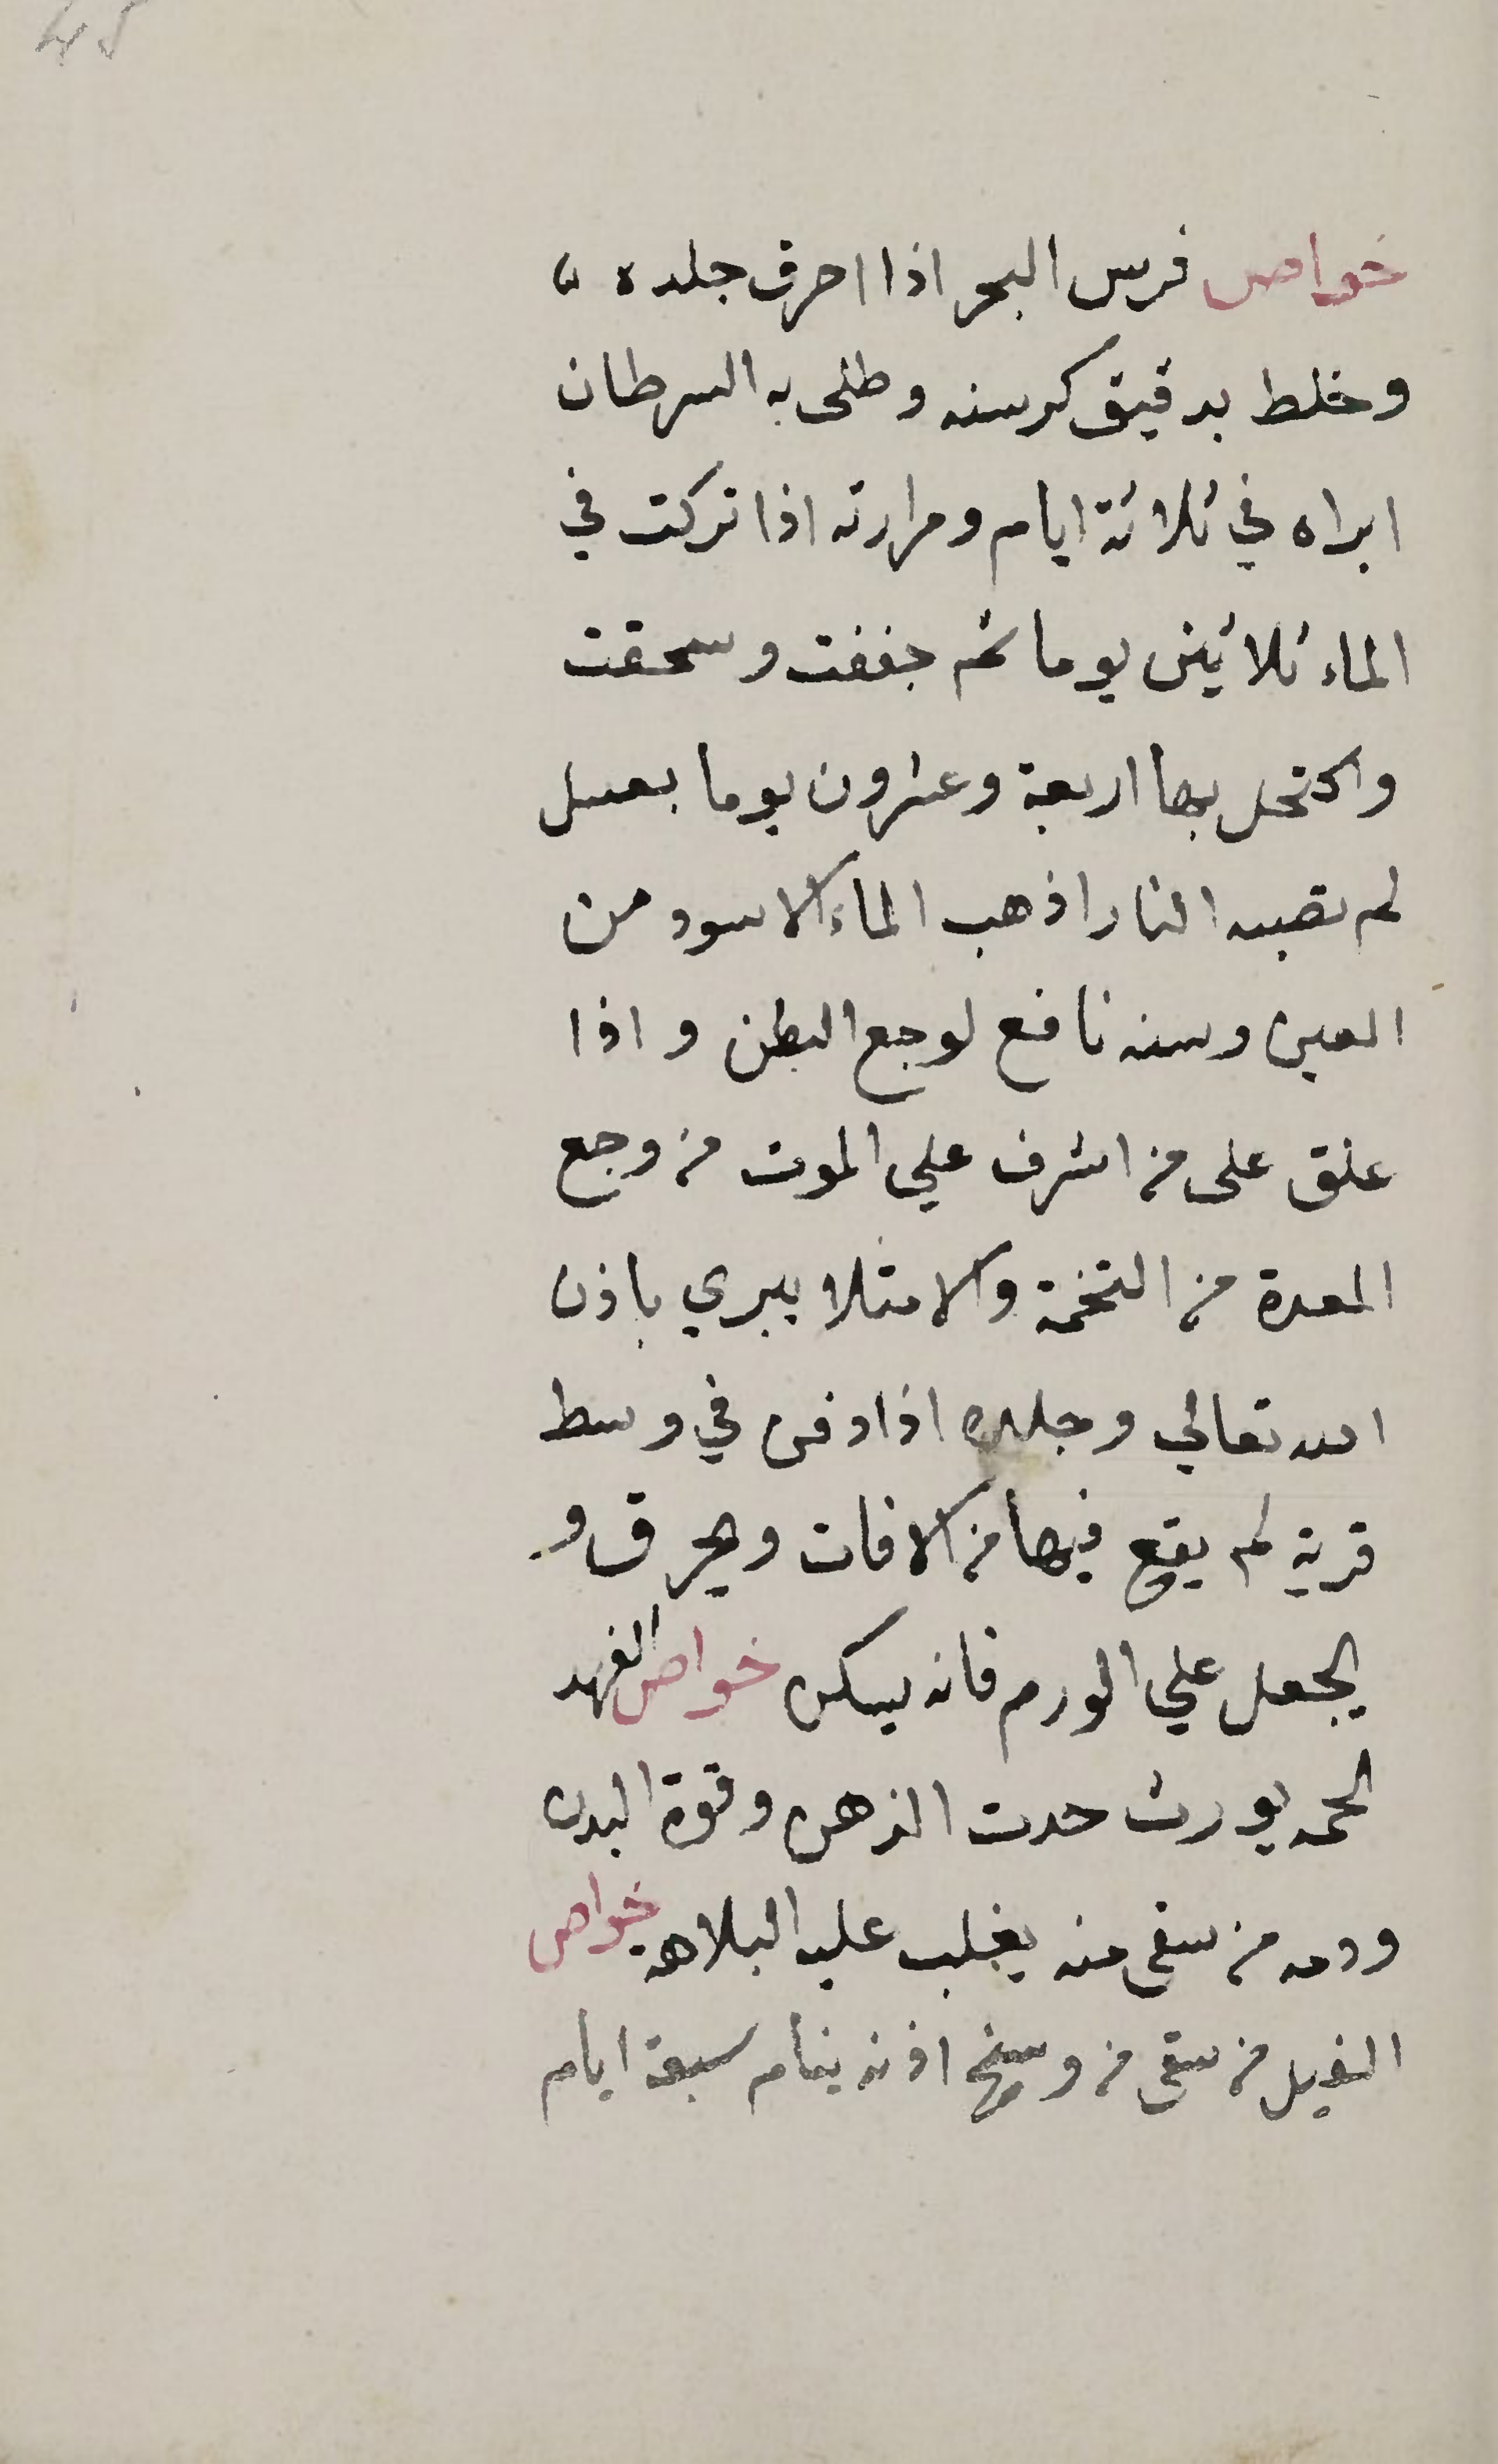 45
خواص فرس البحر اذا احرق جلده
وخلط بدقيق كرسنه وطلى به السرطان
ابراه في ثلاثة ايام ومرارته اذا تركت في
الماء ثلاثين يوما ثم جففت وسحقت
واكتحل بها اربعة وعشرون يوما بعسل
لم تصبه النار اذهب الماء الاسود من
العين وسنه نافع لوجع البطن واذا
علق على من اشرف علي الموت من وجع
المعدة من التخمة والامتلا يبري باذن
الله تعالي وجلده اذا دفن في وسط
قرية لم يقع فيها من الافات ويحرق و
يجعل علي الورم فانه يسكن خواص الفهد
لحمه يورث حدت الذهن وقوة البدن
ودمه من سقى منه يغلب عليه البلاهة خواص
الفيل من سقى من وسخ اذنه ينام سبعة ايام